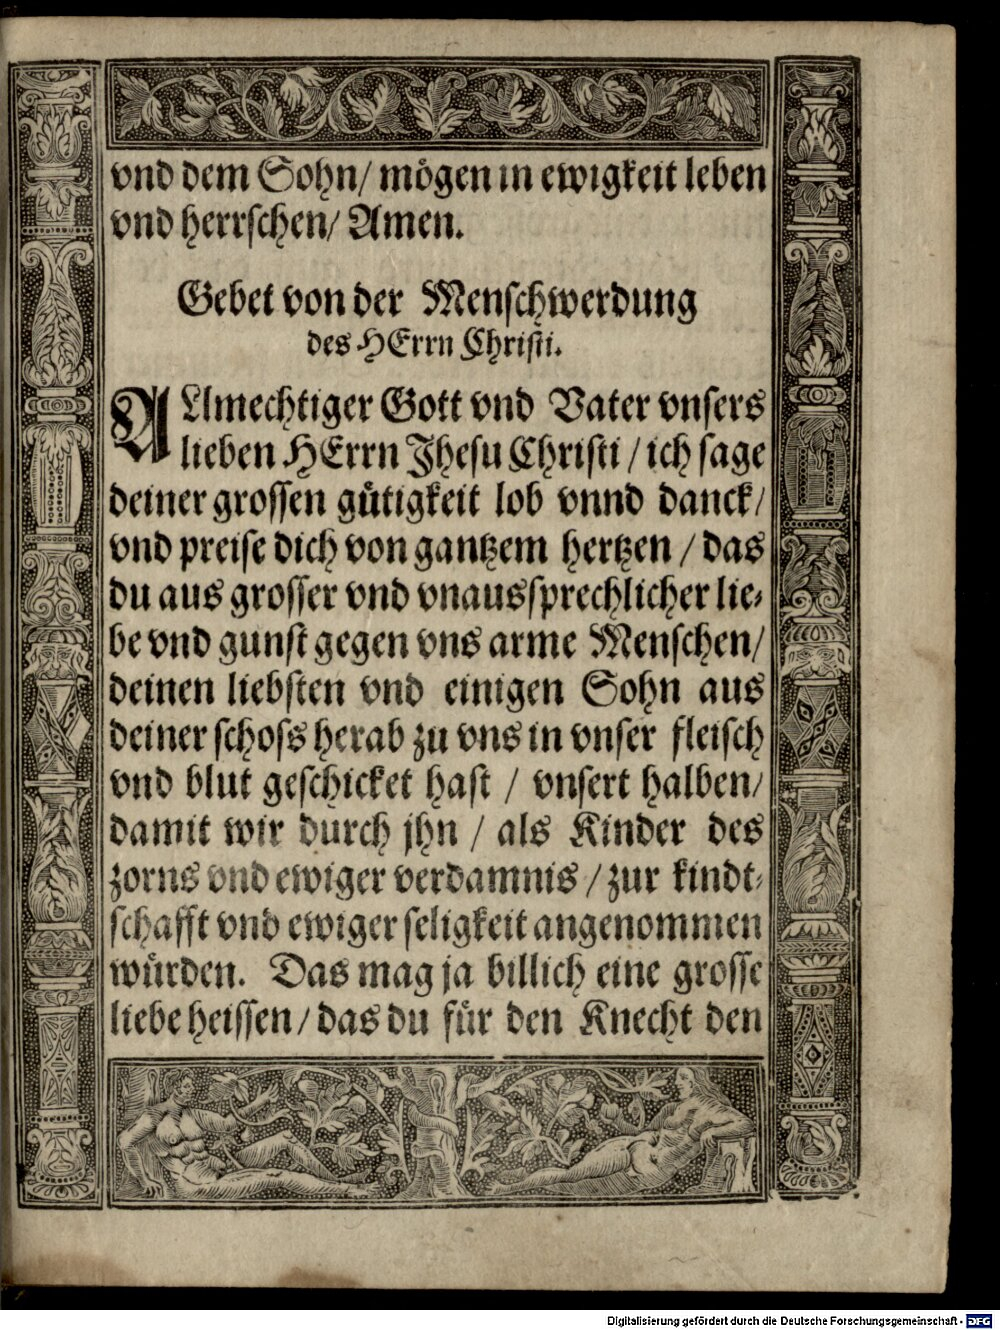 vnd dem Sohn/ mögen in ewigkeit leben
vnd herrschen/ Amen.
Gebet von der Menschwerdung
des HErrn Christi.
ALlmechtiger Gott vnd Vater vnsers
lieben HErrn Jhesu Christi / ich sage
deiner grossen gütigkeit lob vnnd danck/
vnd preise dich von gantzem hertzen / das
du aus grosser vnd vnaussprechlicher lie-
be vnd gunst gegen vns arme Menschen/
deinen liebsten vnd einigen Sohn aus
deiner schoss herab zu vns in vnser fleisch
vnd blut geschicket hast / vnsert halben/
damit wir durch jhn / als Kinder des
zorns vnd ewiger verdamnis / zur kindt-
schafft vnd ewiger seligkeit angenommen
würden. Das mag ja billich eine grosse
liebe heissen/ das du für den Knecht den
Digitalisierung gefördert durch die Deutsche Forschungsgemeinschaft - DFG